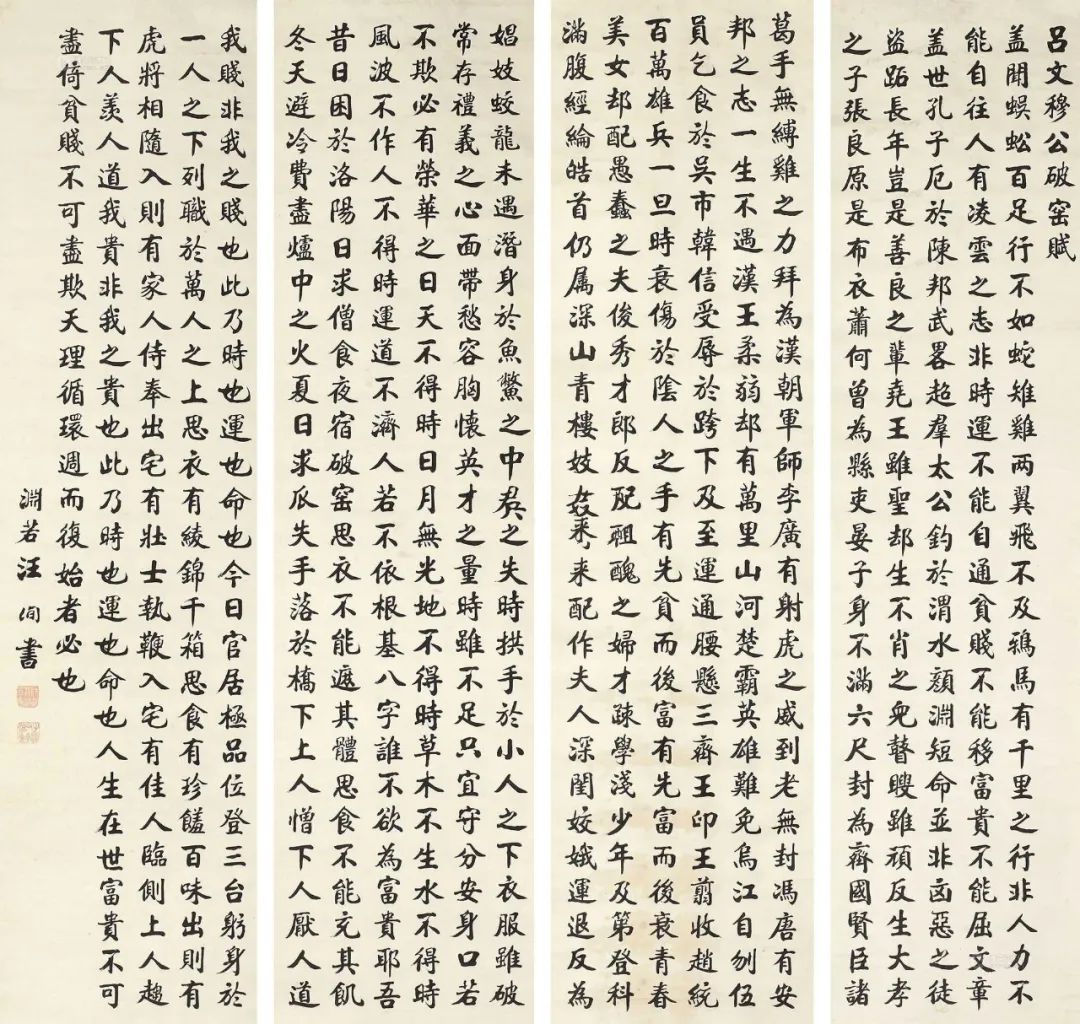 呂文穆公破窑賦
盖聞蜈蚣百足行不如蛇雉雞两翼飛不及鴉馬有千里之行非人力不
能自往人有凌雲之志非時運不能自通貧賤不能移富貴不能屈文章
盖世孔子厄於陳邦武畧超羣太公釣於渭水顔淵短命並非凶惡之徒
盜跖長年豈是善良之輩堯王雖聖却生不肖之兒瞽瞍雖頑反生大孝
之子張良原是布衣蕭何曾為縣吏晏子身不滿六尺封為齊國賢臣諸
葛手無縛雞之力拜為漢朝軍師李廣有射虎之威到老無封馮唐有安
邦之志一生不遇漢王柔弱却有萬里山河楚霸英雄難免烏江自刎伍
員乞食於吳市韓信受辱於跨下及至運通腰懸三齊王印王翦收趙統
百萬雄兵一旦時衰傷於陰人之手有先貧而後富有先富而後衰青春
美女却配愚蠢之夫俊秀才郎反配粗醜之婦才疎學淺少年及第登科
滿腹經綸皓首仍属深山青樓妓来配作夫人深閨姣娥運退反為
娼妓蛟龍未遇潛身於魚鱉之中君之失時拱手於小人之下衣服雖破
常存禮義之心面帶愁容胸懷英才之量時雖不足只宜守分安身口若
不欺必有榮華之日天不得時日月無光地不得時草木不生水不得時
風波不作人不得時運道不濟人若不依根基八字誰不欲為富貴耶吾
昔日困於洛陽日求僧食夜宿破窑思衣不能遮其體思食不能充其飢
冬天避冷費盡爐中之火夏日求瓜失手落於橋下上人憎下人厭人道
我賤非我之賤也此乃時也運也命也今日官居極品位登三台躬身於
一人之下列職於萬人之上思衣有綾錦千箱思食有珍饈百味出則有
虎將相隨入則有家人侍奉出宅有壯士執鞭入宅有佳人臨側上人趨
下人羨人道我貴非我之貴也此乃時也運也命也人生在世富貴不可
盡倚貧賤不可盡欺天理循環週而復始者必也
淵若汪洵書